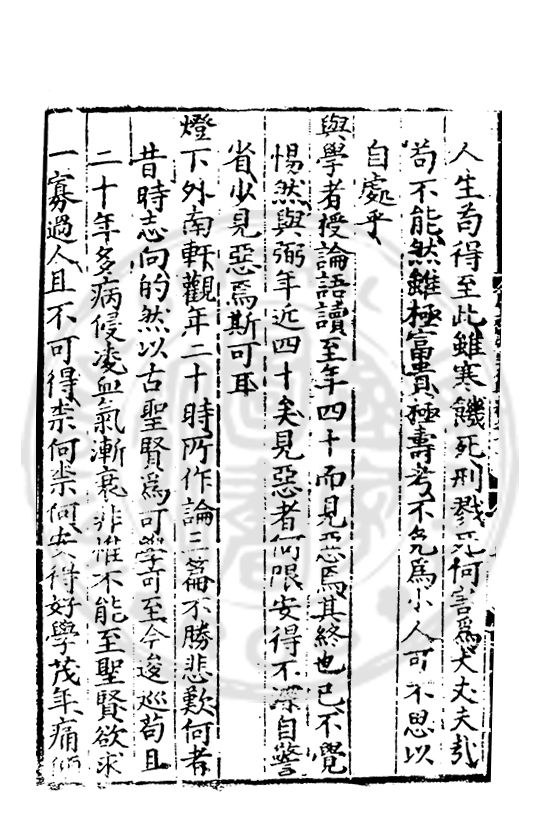 人生苟得至此雖寒饑死刑戮死何害為大丈夫哉
苟不能然雖極富貴極壽考不免為小人可不思以
自處乎
與學者授論語讀至年四十而見惡焉其終也已不覺
惕然與弼年近四十矣見惡者何限安得不深自警
省少見惡焉斯可耳
燈下外南軒觀年二十時所作論三篇不勝悲歎何者
昔時志向的然以古聖賢為可學可至今逡巡苟且
二十年多病侵凌血氣漸衰非惟不能至聖賢欲求
一寡過人且不可得柰何柰何安得好學茂年痛